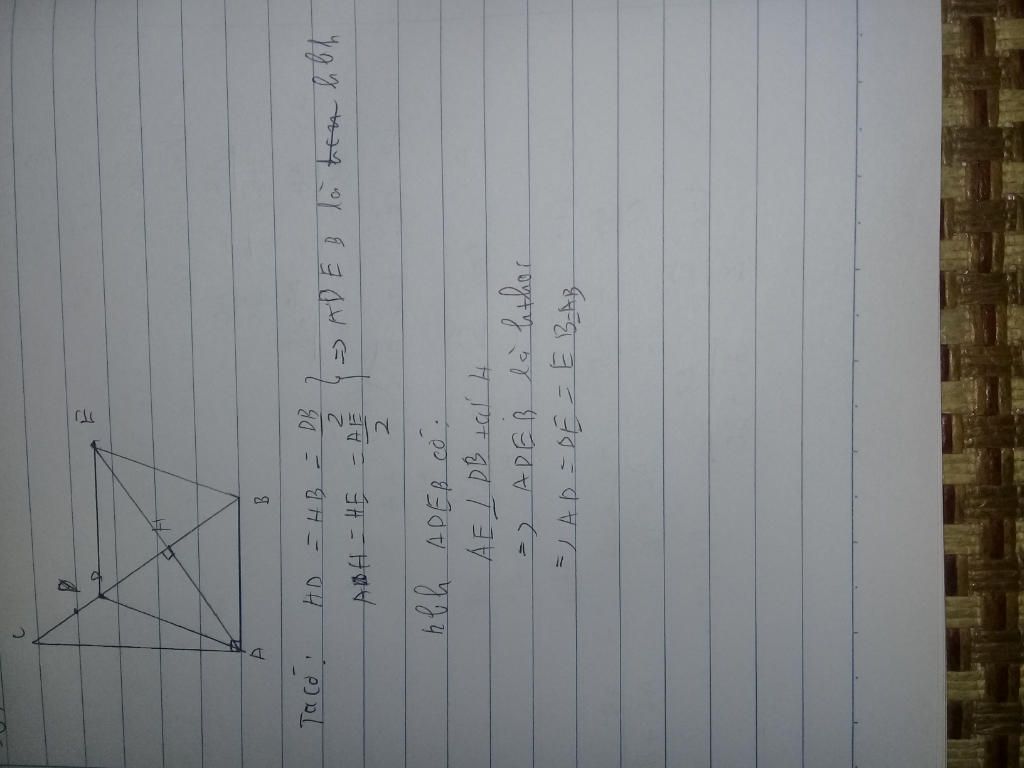 C
D
E
H
A
B
Ta có: HD = HB = DB/2 } => ADEB là hbh
AH = HE = AE/2
hbh ADEB có:
AE ⊥ DB tại H
=> ADEB là hthoi
=> AD = DE = EB = AB